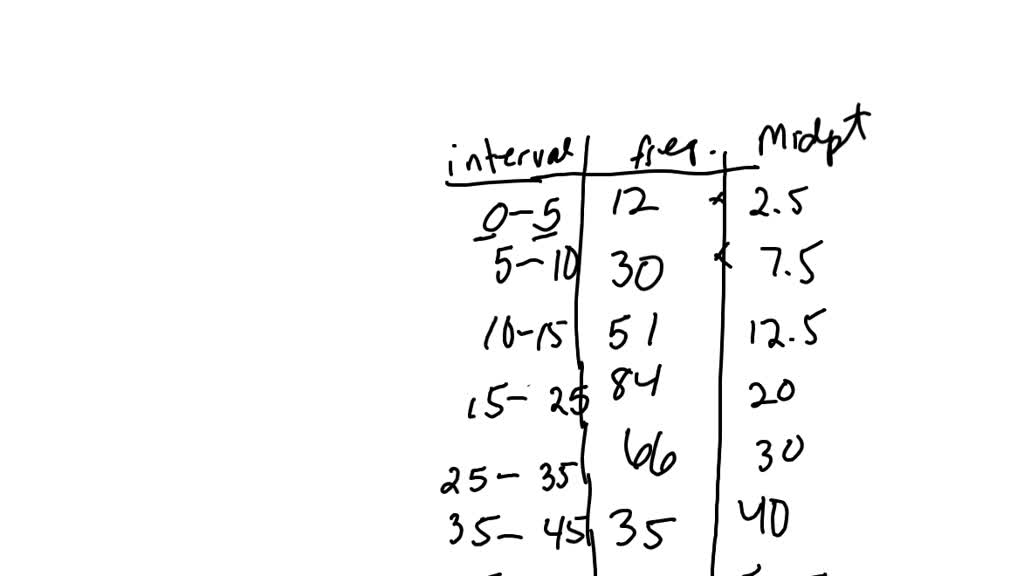 interval freq. Midpt
0-5 12 × 2.5
5-10 30 × 7.5
10-15 51 12.5
15-25 84 20
25-35 66 30
35-45 35 40